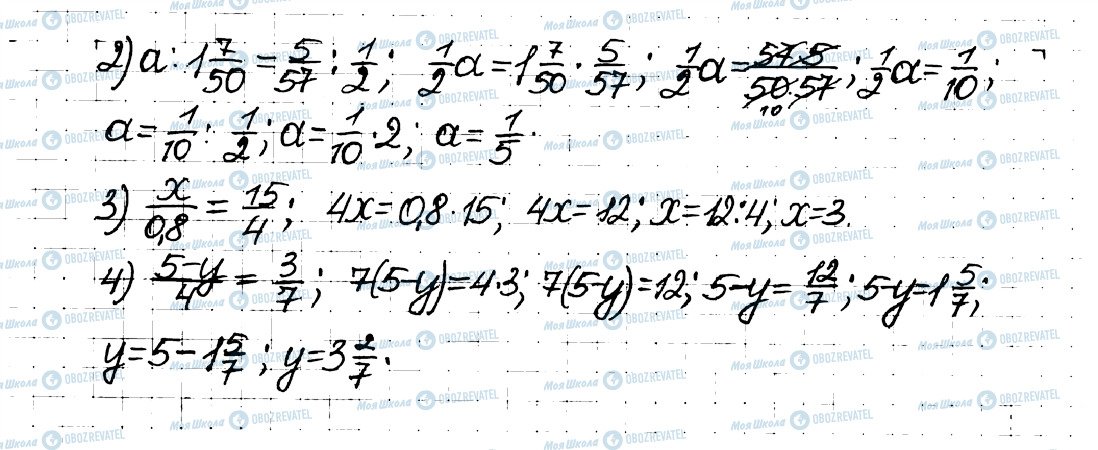 2) a : 1 7/50 = 5/57 : 1/2; 1/2 a = 1 7/50 · 5/57; 1/2 a = 57·5/50·57 10; 1/2 a = 1/10;
a = 1/10 : 1/2; a = 1/10 · 2; a = 1/5.
3) x/0,8 = 15/4; 4x = 0,8 · 15; 4x = 12; x = 12 : 4; x = 3.
4) 5-y/4 = 3/7; 7(5-y) = 4·3; 7(5-y) = 12; 5-y = 12/7; 5-y = 1 5/7;
y = 5 - 1 5/7; y = 3 2/7.